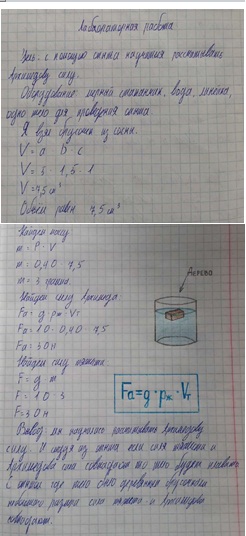 Лабораторная работа
Цель: с помощью опыта научиться рассчитывать
архимедову силу.
Оборудование: мерный стаканчик, вода, линейка,
одно тело для проведения опыта.
Я взял брусочек из сосны.
V = a · b · c
V = 5 · 1,5 · 1
V = 7,5 см³
Объём равен 7,5 см³
Найдем массу
m = P · V
m = 0,40 · 7,5
m = 3 грамма.
Найдем силу Архимеда.
Fa = g · pж · Vт
Fa = 10 · 0,40 · 7,5
Fa = 30 Н
Найдем силу тяжести.
F = g · m
F = 10 · 3
F = 30 Н
Дерево
Fa=g·pж·Vт
Вывод: мы научились рассчитывать архимедову
силу. И из опыта если сила тяжести и
архимедова сила то тело будет плавать
где тело было деревянным брусочком
размера сила тяжести и архимедова